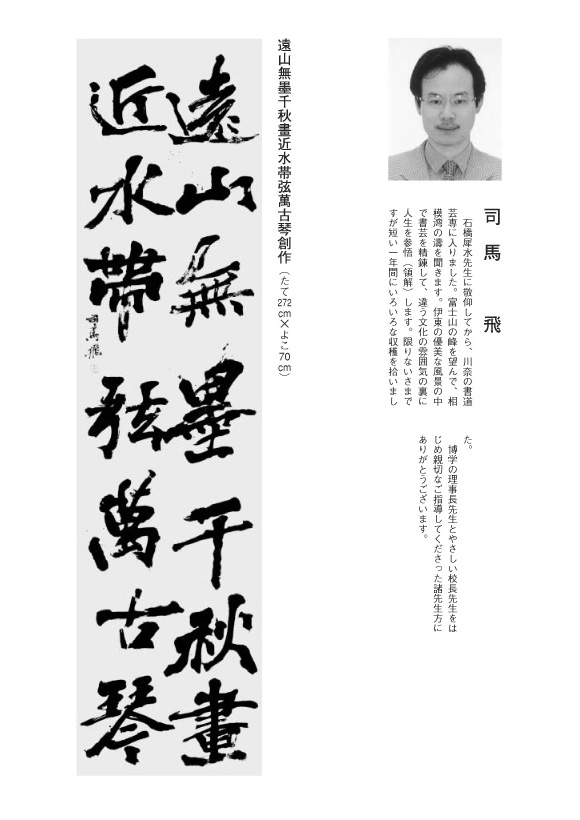 司馬　飛
　石橋犀水先生に敬仰してから、川奈の書道
芸専に入りました。富士山の峰を望んで、相
模湾の濤を聞きます。伊東の優美な風景の中
で書芸を精錬して、違う文化の雰囲気の裏に
人生を参悟（領解）します。限りないさまで
すが短い一年間にいろいろな収穫を拾いまし
た。
　博学の理事長先生とやさしい校長先生をは
じめ親切なご指導してくださった諸先生方に
ありがとうございます。
遠山無墨千秋畫近水帯弦萬古琴創作（たて272cm×よこ70cm）
遠山無墨千秋畫
近水帶弦萬古琴
司馬飛